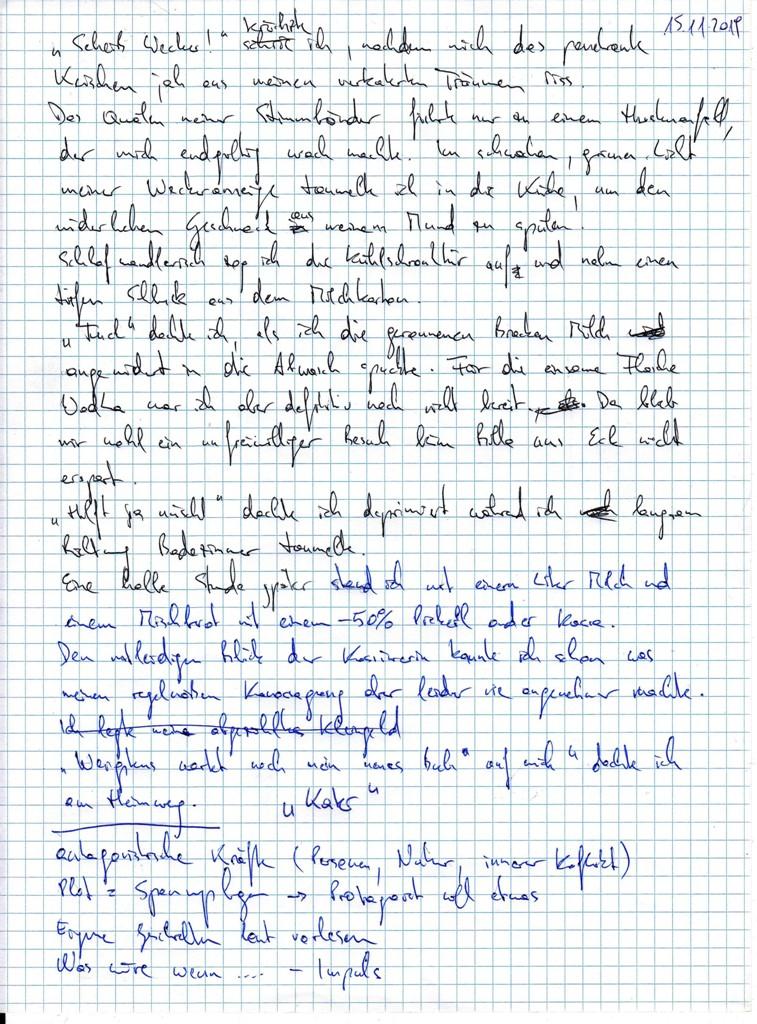 15.11.2019
„Scheiß Wecker!" krächzte ich, nachdem mich das penetrante
Kreischen jäh aus meinen verkaterten Träumen riss.
Das Quälen meiner Stimmbänder führte nur zu einem Hustenanfall,
der mich endgültig wach machte. Im schwachen, grünen Licht
meiner Weckeranzeige taumelte ich in die Küche, um den
widerlichen Geschmack aus meinem Mund zu spülen.
Schlafwandlerisch zog ich die Kühlschranktür auf und nahm einen
tiefen Schluck aus dem Milchkarton.
„Fuck" dachte ich, als ich die geronnenen Brocken Milch
angewidert in die Abwasch spuckte. Für die einsame Flasche
Wodka war ich aber definitiv noch nicht bereit. Da blieb
mir wohl ein unfreiwilliger Besuch beim Billa ums Eck nicht
erspart.
„Hilft ja nichts" dachte ich deprimiert während ich langsam
Richtung Badezimmer taumelte.
Eine halbe Stunde später stand ich mit einem Liter Milch und
einem Mischbrot mit einem -50% Pickerl an der Kassa.
Den mitleidigen Blick der Kassiererin kannte ich schon was
meinen regelmäßigen aber leider nie angenehmer machte.
Ich legte mein abgezähltes Kleingeld
„Wenigstens wartet noch mein neues Buch" auf mich" dachte ich
am Heimweg. „Kaks"
antagonistische Kräfte (Personen, Natur, innerer Konflikt)
Plot = Spannungsbogen → Protagonist will etwas
Eigene Geschichten laut vorlesen
Was wäre wenn .... - Impuls